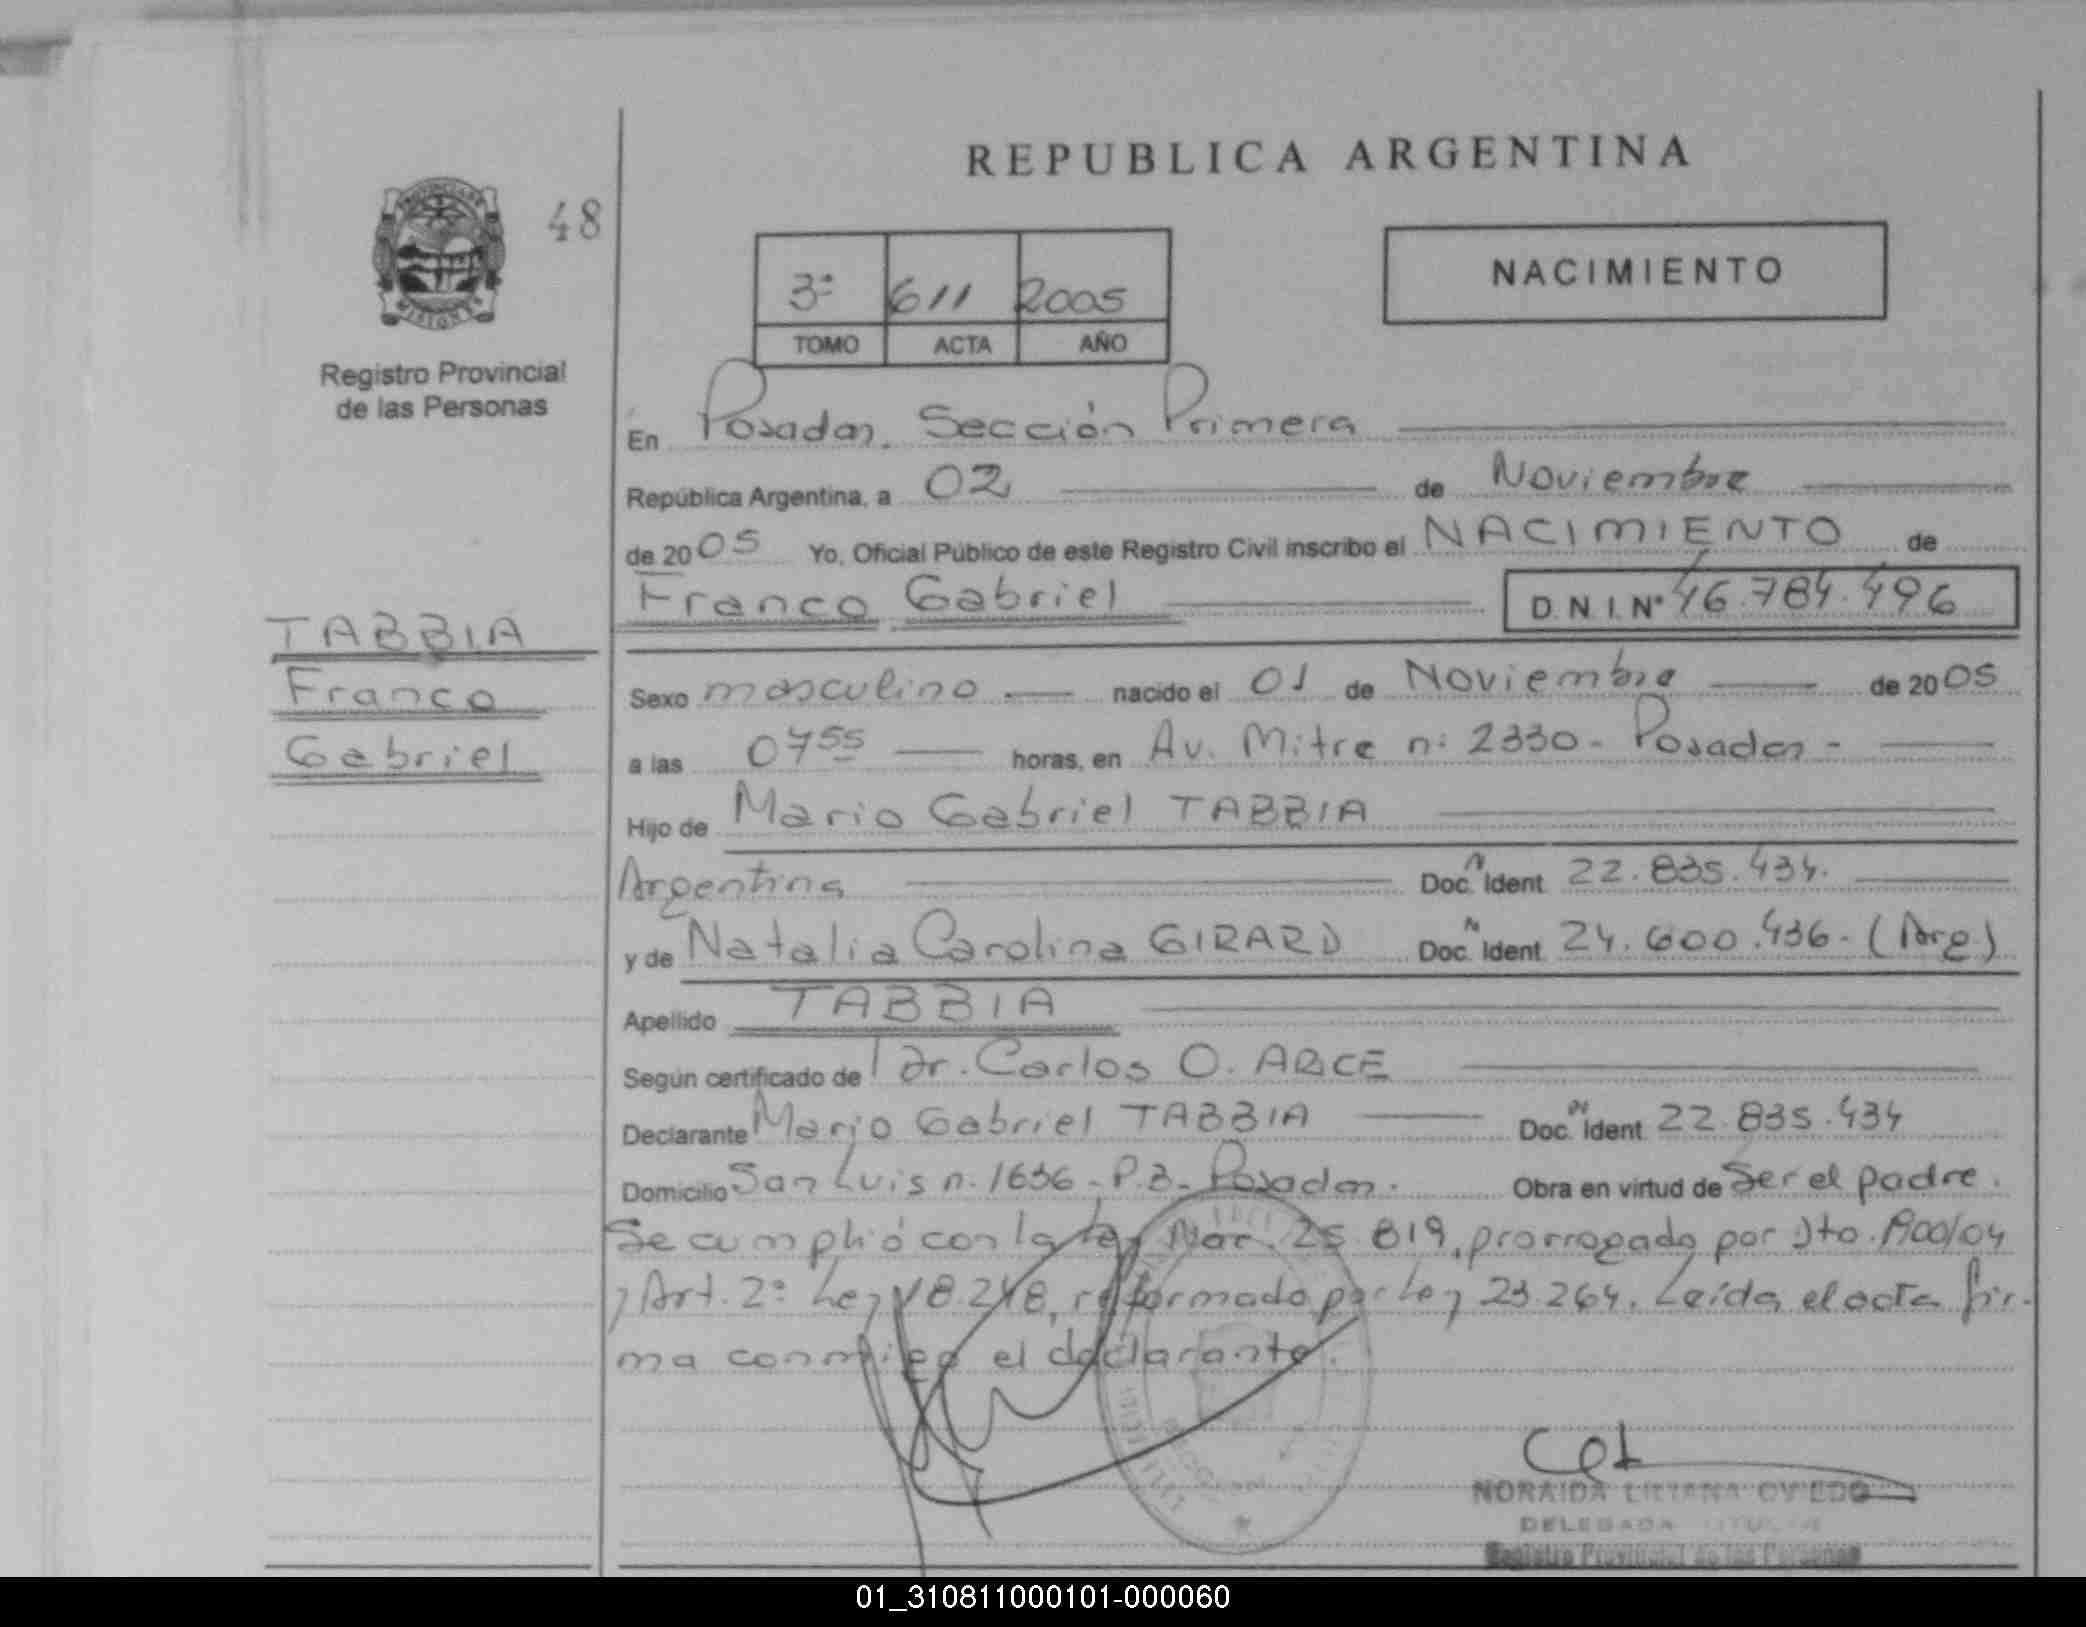 REPUBLICA ARGENTINA
PROVINCIA DE MISIONES
48
Registro Provincial
de las Personas
3º 611 2005
TOMO ACTA AÑO
NACIMIENTO
En Posadas. Sección Primera
República Argentina, a 02 de Noviembre
de 2005 Yo, Oficial Público de este Registro Civil inscribo el NACIMIENTO de
Franco Gabriel D.N.I. Nº 46.784.496
TABBIA
Franco
Gabriel
Sexo masculino nacido el 01 de Noviembre de 2005
a las 0755 horas, en Av. Mitre nº 2330- Posadas-
Hijo de Mario Gabriel TABBIA
Argentina Doc. Ident. 22.835.434.
y de Natalia Carolina GIRARD Doc. Ident. 24.600.436- (Arg)
Apellido TABBIA
Según certificado de Dr. Carlos O. ARCE
Declarante Mario Gabriel TABBIA Doc. Ident. 22.835.434
Domicilio San Luis n. 1636-P.B- Posadas. Obra en virtud de Ser el padre.
Se cumplió con la Ley Nac. 25 819, prorrogado por Dto. /04
y Art. 2º Ley 18.248, reformado por Ley 23.264. Leída el acta fir-
ma conmigo el declarante.
NORAIDA LILIANA OVIEDO
DELEGADA TITULAR
Registro Provincial de las Personas
01_310811000101-000060